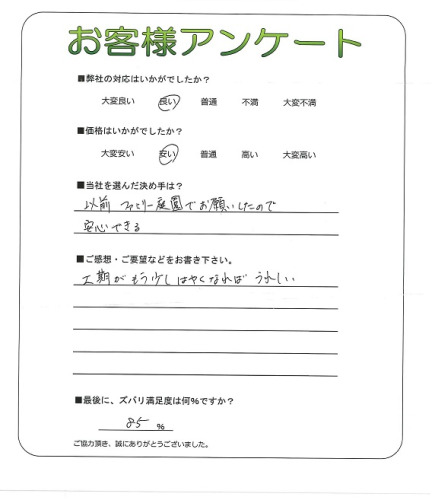 お客様アンケート
■弊社の対応はいかがでしたか？
大変良い 良い 普通 不満 大変不満
■価格はいかがでしたか？
大変安い 安い 普通 高い 大変高い
■当社を選んだ決め手は？
以前 ファミリー庭園でお願いしたので
安心できる
■ご感想・ご要望などをお書き下さい。
工期がもう少しはやくなれば うれしい
■最後に、ズバリ満足度は何％ですか？
85 %
ご協力頂き、誠にありがとうございました。